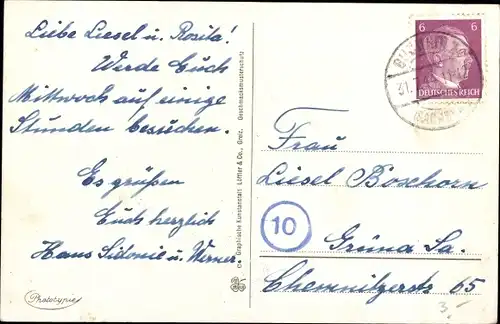 Liebe Liesel u. Rosita!
Werde Euch
Mittwoch auf einige
Stunden besuchen.
Es grüßen
Euch herzlich
Hans Sidonie u. Werner.
Phototypie
Graphische Kunstanstalt Löffler & Co., Greiz. Geschmacksmusterschutz
6 6
DEUTSCHES REICH
31.
Frau
Liesel Boxhorn
10
Grüna Sa.
Chemnitzerstr 65
3,-